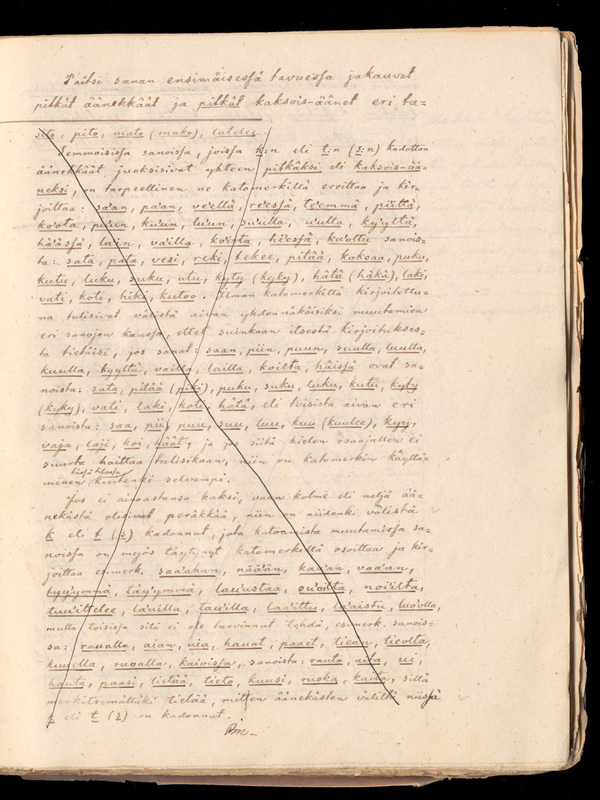 Paitsi sanan ensimäisessä tavuessa jakauvat
pitkät äänekkäät ja pitkät kaksois-äänet eri ta=
sito, pito, mato (mako), lutelee.
Semmoisissa sanoissa, joissa k:n eli t:n (s:n) kadottua
äänekkäät juoksisivat yhteen pitkäksi eli kaksois-ää-
neksi, on tarpeellinen ne katomerkillä eroittaa ja kir-
joittaa: sa'an, pa'an, ve'ellä, re'essä, te'emmä, pi'itä,
ko'ota, pu'un, ku'un, lu'un, su'ulla, u'ulla, ky'yltä,
hä'ässä, la'in, va'illa, ko'ista, hi'essä, ku'ottu sanois-
ta: sata, pata, vesi, reki, tekee, pitää, kokoaa, puku,
kutu, luku, suku, utu, kyty (kyky), hätä (häkä), laki,
vati, koti, hiki, kutoo. Ilman katomerkittä kirjoitettu=
na tulisivat välistä aivan yhdennäköisiksi muutamien
eri sanojen kanssa, ettet suinkaan itsestä kirjoituksес-
ta tietäisi, jos sanat: saan, piin, puun, suulla, luulla,
kuulla, kyyltä, vailla, lailla, koilta, häissä ovat sa-
noista: sata, pitää (piki), puku, suku, luku, kutu, kyty
(kyky), vati, laki, koti, hätä, eli toisista aivan eri
sanoista: saa, pii, puu, suu, luu, kuu (kuulee), kyy,
vaja, laji, koi, häät, ja jos siitä kielen osaajallen ei
suurta haittaa tulisikaan, niin on katomerkin käyttä-
minen tässä tilassa kuitenki selvempi.
Jos ei ainoastansa kaksi, vaan kolme eli neljä ää-
nekästä olisivat peräkkää, niin on niidenki välistä
k eli t (s) kadonnut, jota katoamista muutamissa sa-
noissa on myös täytynyt katomerkillä osoittaa ja kir-
joittaa esimerk. saa'ahan, nää'än, kaa'an, vaa'an,
tyy'ymmä, läy'ymmä, lau'ustaa, ou'oilta, noi'ilta,
tuu'ittelee, la'uilla, tau'illa, laa'ittu, la'aistu, luo'olla,
mutta toisissa sitä ei ole tarvinnut tehdä, esimerk. sanois-
sa: raualla, aian, uia, hauat, paaet, tiean, tieolta,
kuuella, ruoalla, kaivoissa, sanoista: rauta, aita, ui,
hauta, paasi, tietää, tieto, kuusi, ruoka, kaita, sillä
merkitsemättäki tietää, mitten äänekästen väliltä niissä
k eli t (s) on kadonnut.